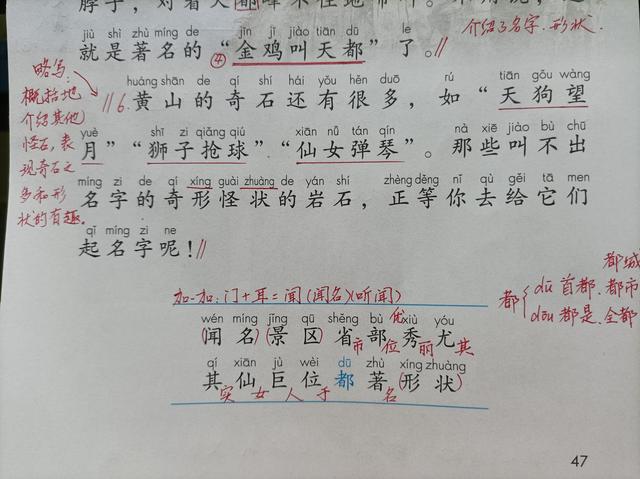 jiù shì zhù míng de jīn jī jiào tiān dū
就是著名的“金鸡叫天都”了。
④
介绍了名字.形状.
huáng shān de qí shí hái yǒu hěn duō rú tiān gǒu wàng
6.黄山的奇石还有很多，如“天狗望
yuè shī zi qiǎng qiú xiān nǚ tán qín nà xiē jiào bù chū
月”“狮子抢球”“仙女弹琴”。那些叫不出
míng zi de qí xíng guài zhuàng de yán shí zhèng děng nǐ qù gěi tā men
名字的奇形怪状的岩石，正等你去给它们
qǐ míng zì ne
起名字呢！
略写:
概括地
介绍其他
怪石,表
现奇石之
多和形
状的有趣.
加一加:门+耳=闻(闻名)(听闻)
wén míng jǐng qū shěng bù xiù yóu
(闻名)(景区)省部秀尤
市 位 优 丽 其
qí xiān jù wèi dū zhù xíng zhuàng
其仙巨位都著(形状)
实 女 人 于 名
都城
都{dū 首都.都市
dōu 都是.全都
47